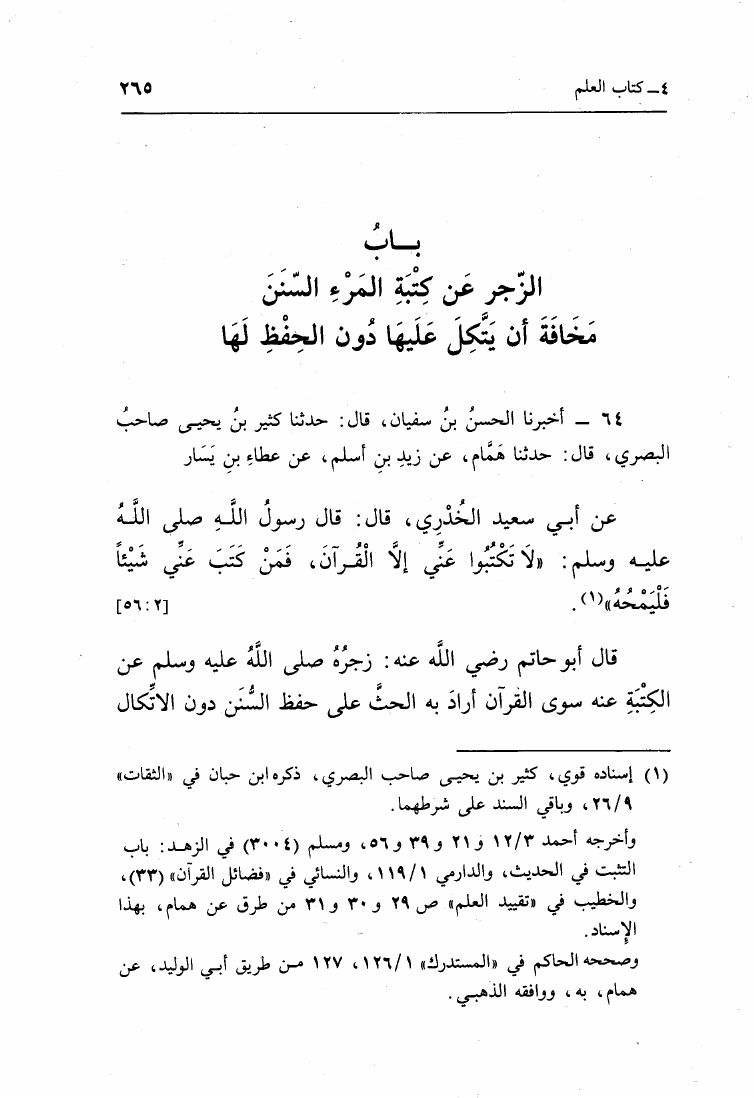 ٤ ـ كتاب العلم
٢٦٥
بـابُ
الزّجر عَن كِتْبَةِ المَرْءِ السّنَنَ
مَخَافَةَ أن يَتَّكِلَ عَلَيهَا دُون الحِفْظِ لَهَا
٦٤ ـ أخبرنا الحسنُ بنُ سفيان، قال: حدثنا كثير بنُ يحيـى صاحبُ
البصري، قال: حدثنا هَمَّام، عن زيدِ بنِ أسلم، عن عطاءِ بنِ يَسَار
عن أبـي سعيد الخُدْرِي، قال: قال رسولُ اللَّـهِ صلى اللَّـهُ
عليـه وسلم: «لَا تَكْتُبُوا عَنِّي إلَّا الْقُـرآنَ، فَمَنْ كَتَبَ عَنِّي شَيْئاً
فَلْيَمْحُهُ»(١).
[٥٦:٢]
قال أبو حاتم رضي اللَّه عنه: زجرُهُ صلى اللَّهُ عليه وسلم عن
الكِتْبَةِ عنه سوى القرآن أرادَ به الحثَّ على حفظ السُّنَن دون الاتِّكال
(١) إسناده قوي، كثير بن يحيـى صاحب البصري، ذكره ابن حبان في «الثقات»
٢٦/٩، وباقي السند على شرطهما.
وأخرجه أحمد ١٢/٣ و ٢١ و ٣٩ و ٥٦، ومسلم (٣٠٠٤) في الزهـد: باب
التثبت في الحديث، والدارمي ١١٩/١، والنسائي في «فضائل القرآن» (٣٣)،
والخطيب في «تقييد العلم» ص ٢٩ و ٣٠ و ٣١ من طرق عن همام، بهذا
الإسناد.
وصححه الحاكم في «المستدرك» ١٢٦/١، ١٢٧ مـن طريق أبـي الوليد، عن
همام، به، ووافقه الذهبـي.